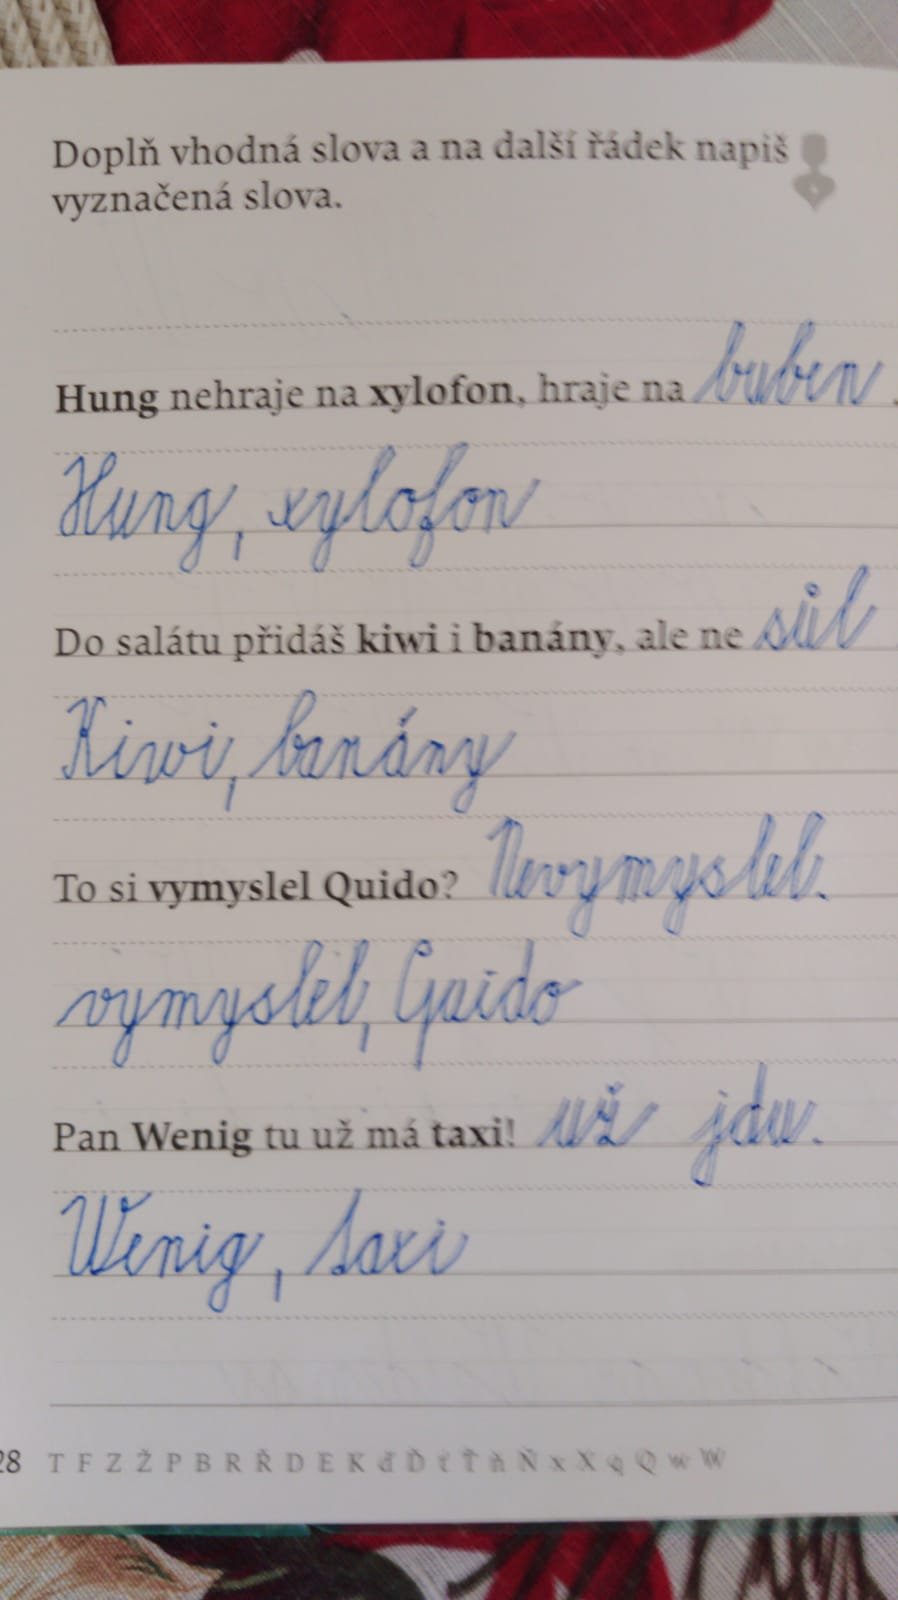 Doplň vhodná slova a na další řádek napiš
vyznačená slova.
Hung nehraje na xylofon, hraje na buben .
Hung, xylofon
Do salátu přidáš kiwi i banány, ale ne sůl
Kiwi, banány
To si vymyslel Quido? Nevymyslel.
vymyslel, Quido
Pan Wenig tu už má taxi! už jdu.
Wenig, taxi
28 T F Z Ž P B R Ř D E K ď Ď ť Ť ň Ň x X q Q w W